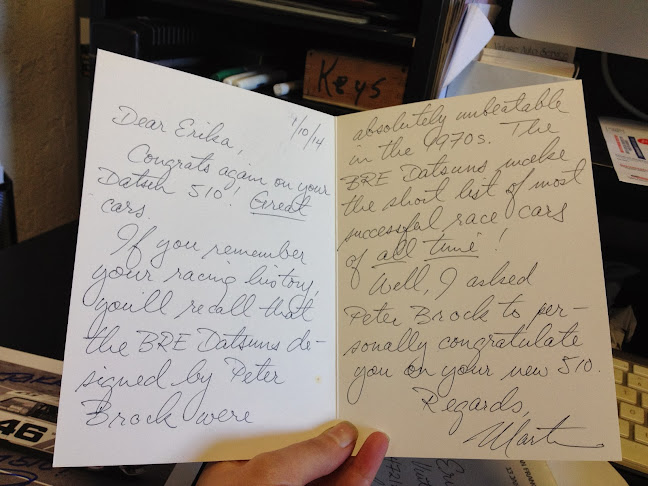 1/10/14
Dear Erika,
Congrats again on your
Datsun 510! Great
cars.
If you remember
your racing history,
you'll recall that
the BRE Datsuns de-
signed by Peter
Brock were
absolutely unbeatable
in the 1970s. The
BRE Datsuns make
the short list of most
successful race cars
of all time!
Well, I asked
Peter Brock to per-
sonally congratulate
you on your new 510.
Regards,
Martin
Keys
46